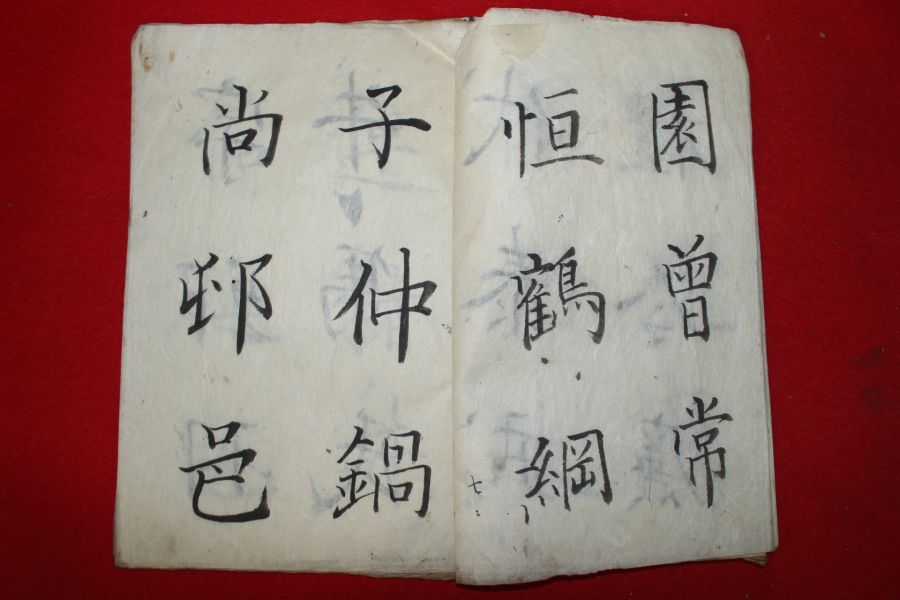 園曾常
恒鶴綱
七
子仲鍋
尚邨邑